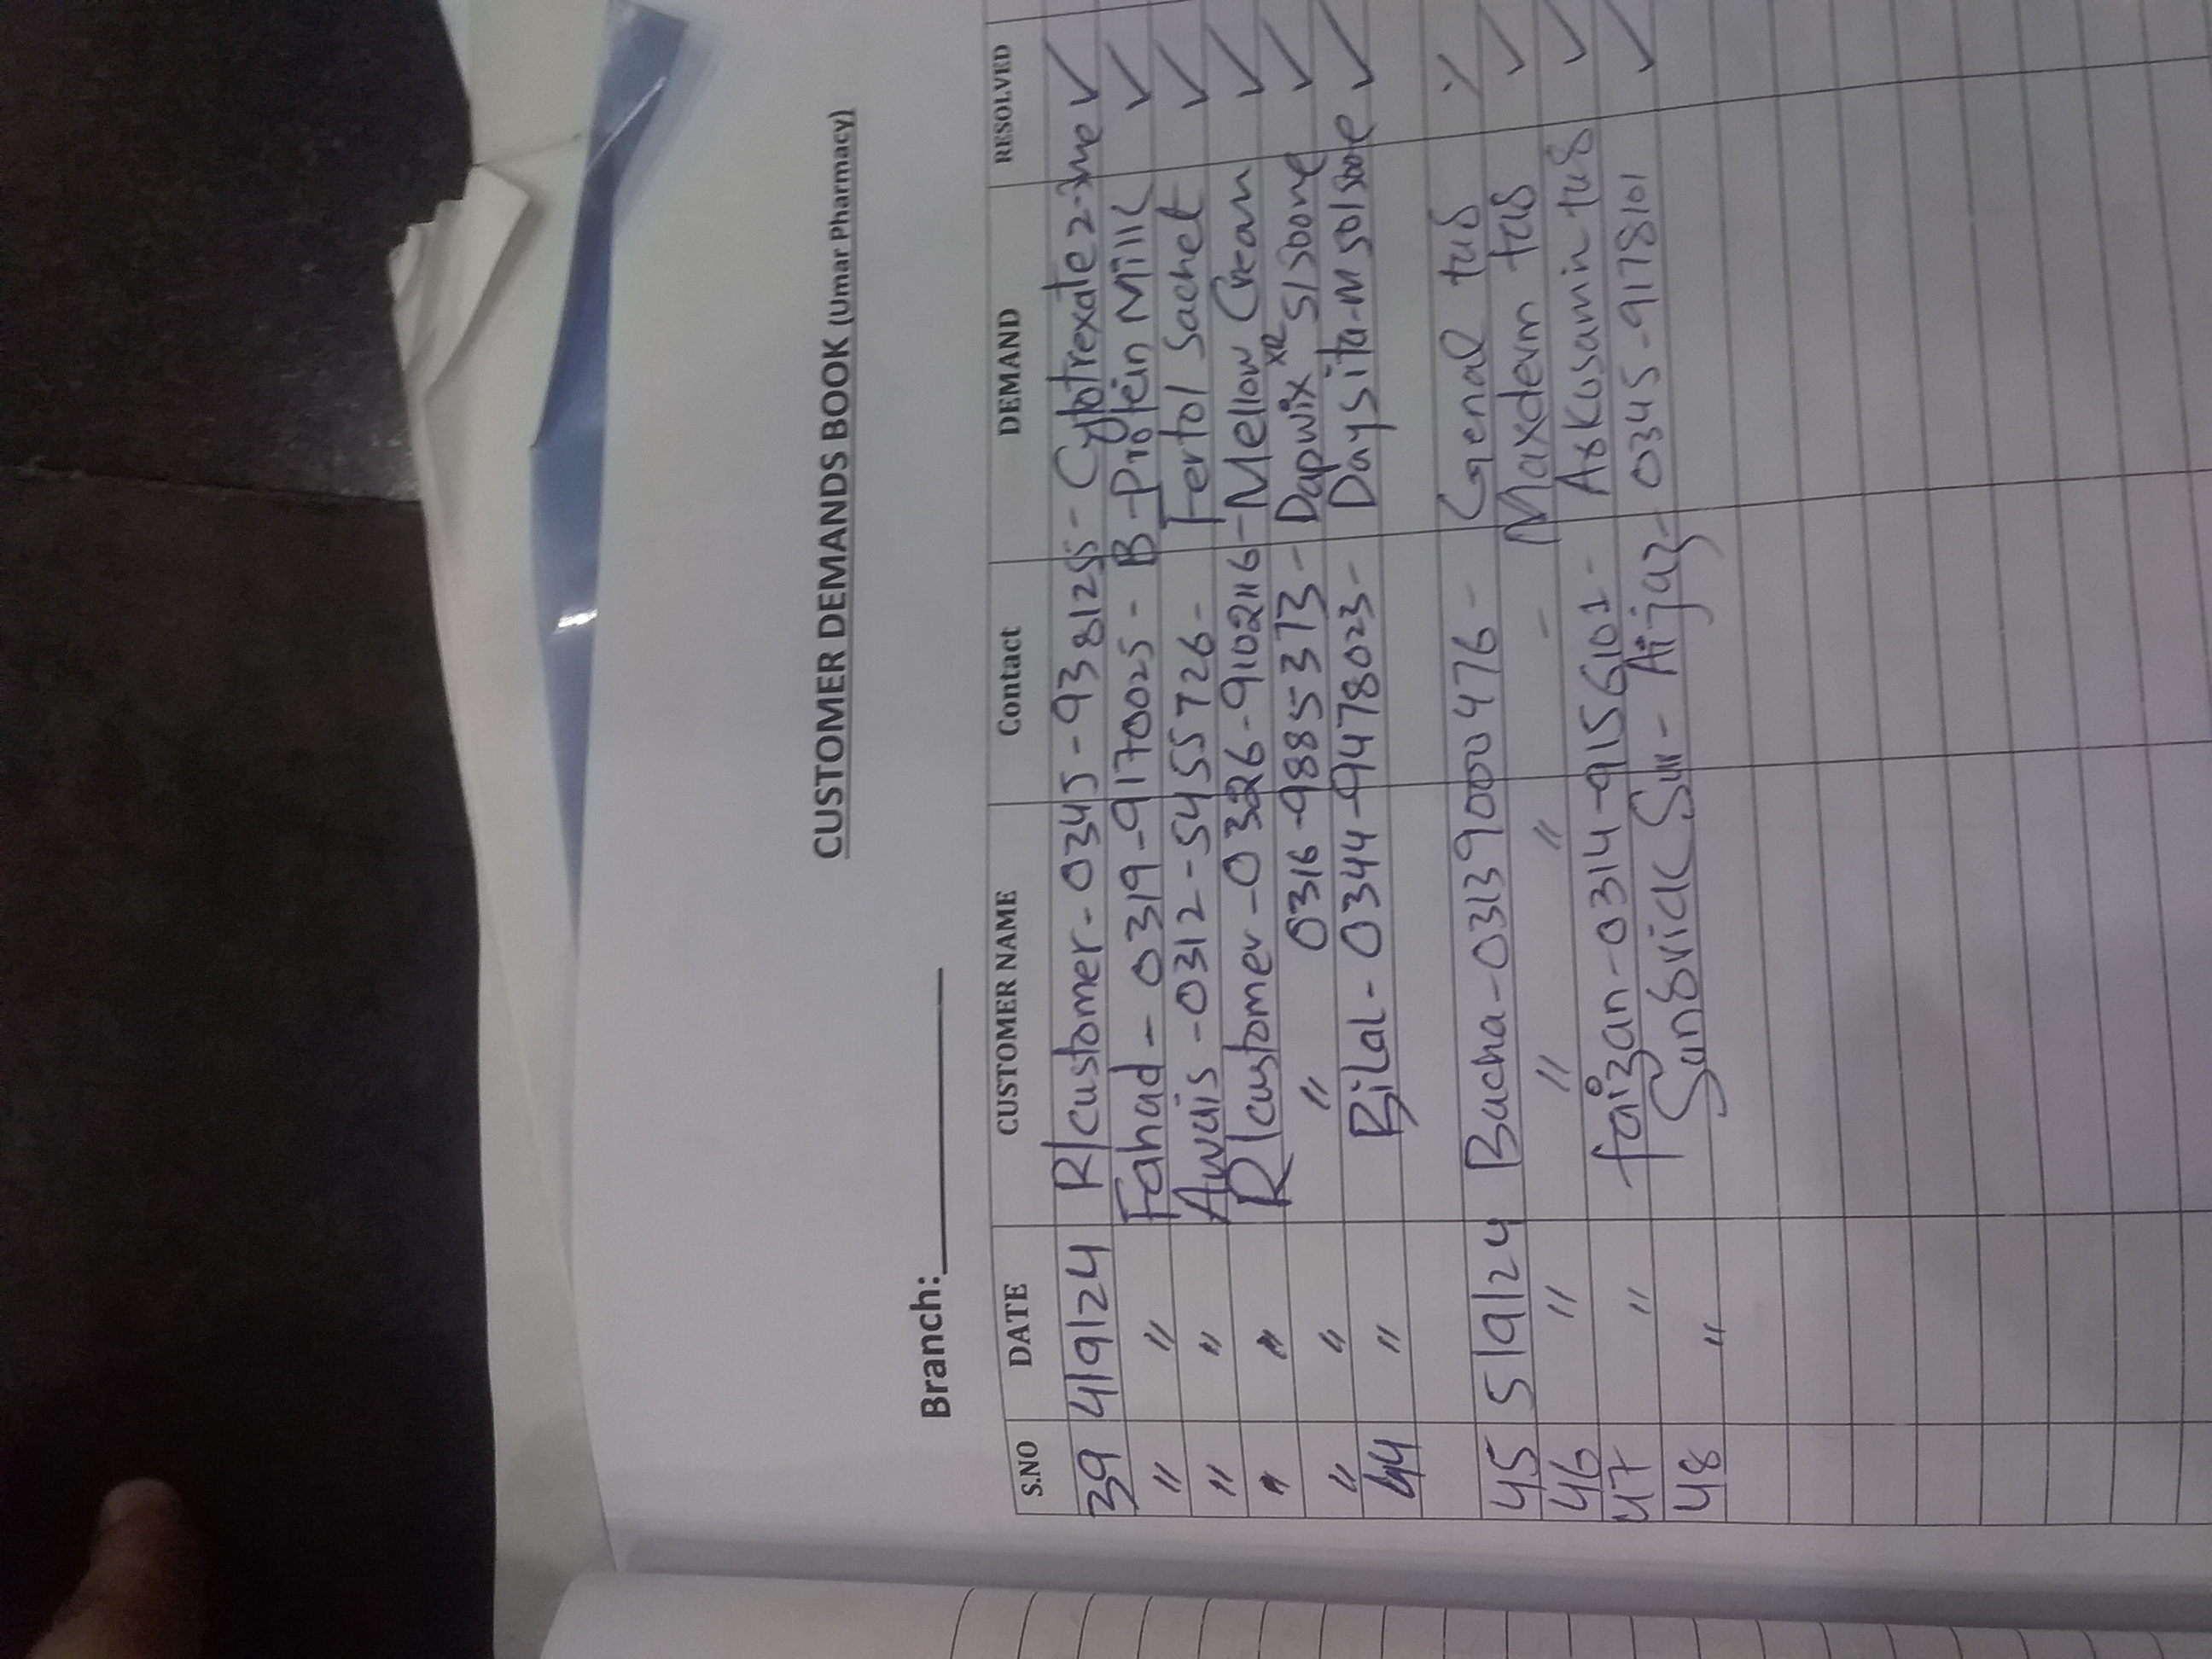 CUSTOMER DEMANDS BOOK (Umar Pharmacy)
Branch:
S.NO DATE CUSTOMER NAME Contact DEMAND RESOLVED
39 4/9/24 R/customer - 0345 - 938125 - Cytotrexate 2.5mg ✓
" " Fahad - 0319-9170025 - B-Protein Milk ✓
" " Awais - 0312-5455726 - Fertol Sachet ✓
" " R/customer - 0326-9102116 - Mellow Cream ✓
" " " 0316-9885373 - Dapwix XR ✓
44 " Bilal - 0344-9478023 - Daysita-M ✓
45 5/9/24 Bacha - 03139000476 - Genal tab
46 " " " - Maxderm tab ✓
47 " faizan - 0314-9156101 - tab ✓
48 " Aijaz - 0345-9178101 ✓